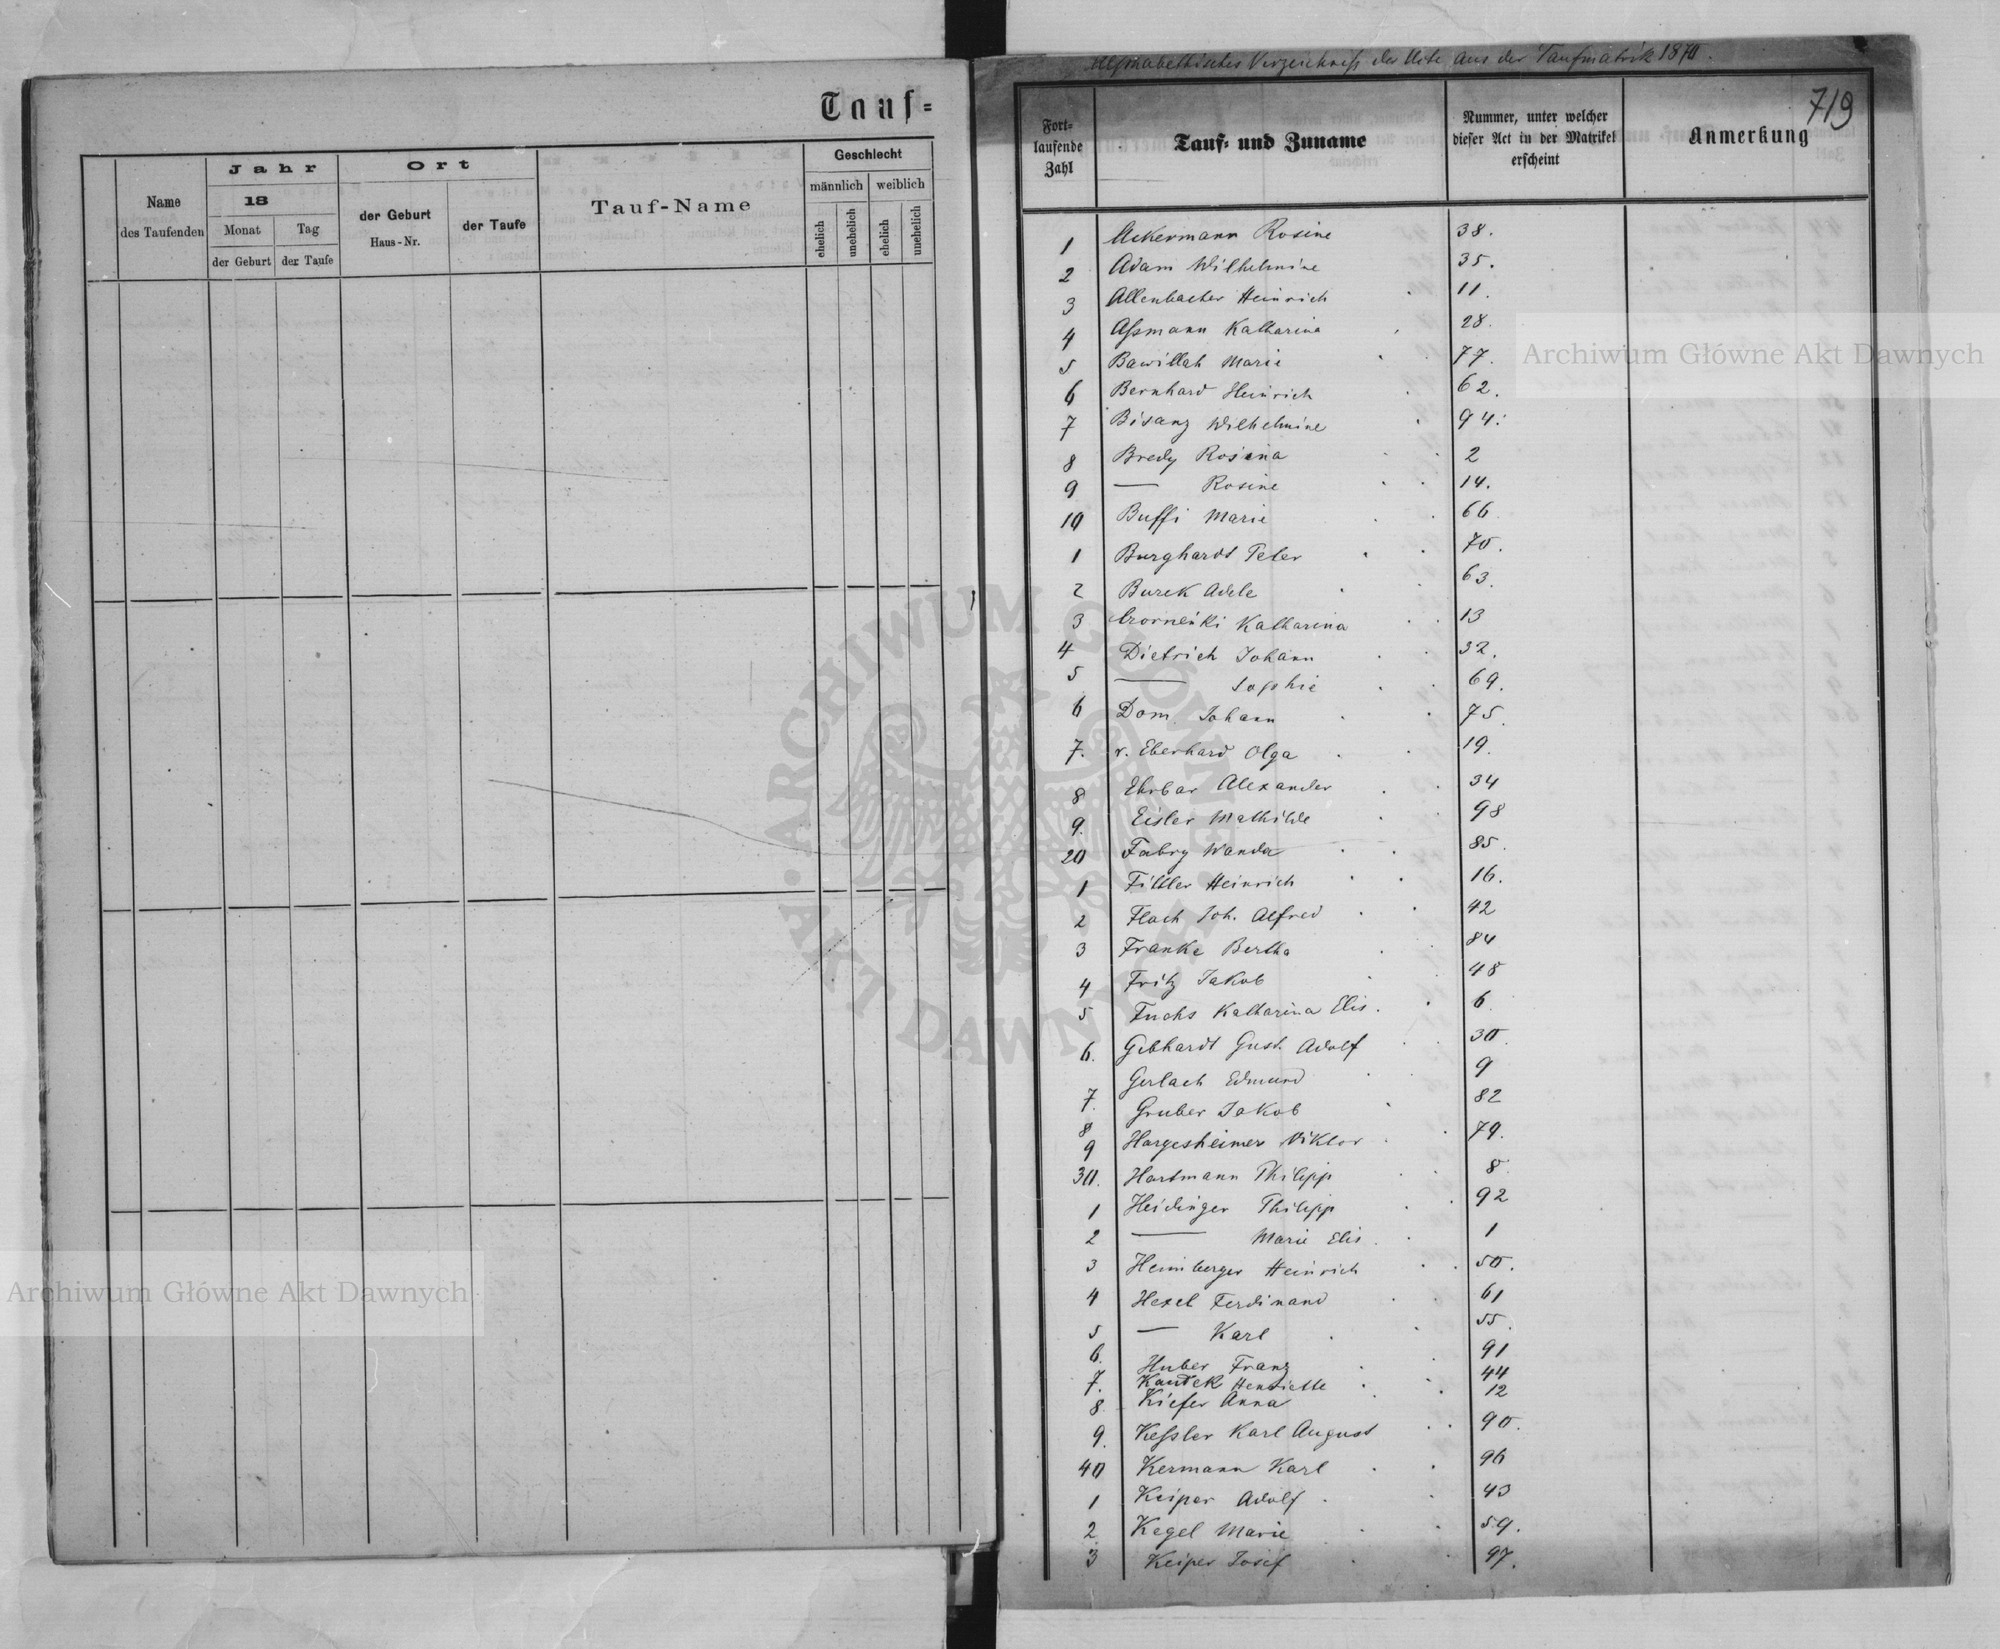 Tauf=
Name
des Taufenden
Jahr
18
Monat
Tag
der Geburt
der Taufe
Ort
der Geburt
Haus-Nr.
der Taufe
Tauf-Name
Geschlecht
männlich weiblich
ehelich unehelich ehelich unehelich
Alphabethisches Verzeichniß der Akte aus der Taufmatrik 1870.
719
Fort=
laufende
Zahl
Tauf= und Zuname
Nummer, unter welcher
dieser Act in der Matrikel
erscheint
Anmerkung
1 Ackermann Rosine 38.
2 Adam Wilhelmine 35.
3 Allenbacher Heinrich 11.
4 Aßmann Katharina 28.
5 Bawillah Marie 77.
6 Bernhard Heinrich 62.
7 Bisanz Wilhelmine 94.
8 Bredy Rosina 2
9 — Rosine 14.
10 Buffi Marie 66
1 Burghardt Peter 70.
2 Burek Adele 63.
3 Katharina 13
4 Dietrich Johann 32.
5 — Sophie 69.
6 Dom Johann 75.
7. v. Eberhard Olga 19.
8 Ehrbar Alexander 34
9. Eisler Mathilde 98
20 Fabry Wanda 85.
1 Fittler Heinrich 16.
2 Flach Joh. Alfred 42
3 Franke Bertha 84
4 Fritz Jakob 48
5 Fuchs Katharina Elis. 6
6. Gebhardt Gust. Adolf 30.
7. Gerlach Edmund 9
8 Gruber Jakob 82
9 Hargesheimer Viktor 79.
30. Hartmann Philipp 8
1 Heidinger Philipp 92
2 — Marie Elis. 1
3 Heimberger Heinrich 50.
4 Hexel Ferdinand 61
5 — Karl 55.
6. Huber Franz 91
7. Kautek Henriette 44
8 Kiefer Anna 12
9. Keßler Karl August 90.
40 Kermann Karl 96
1 Keiper Adolf 43
2 Kegel Marie 59.
3 Keiper Josef 97.
Archiwum Główne Akt Dawnych
Archiwum Główne Akt Dawnych
ARCHIWUM GŁÓWNE AKT DAWNYCH